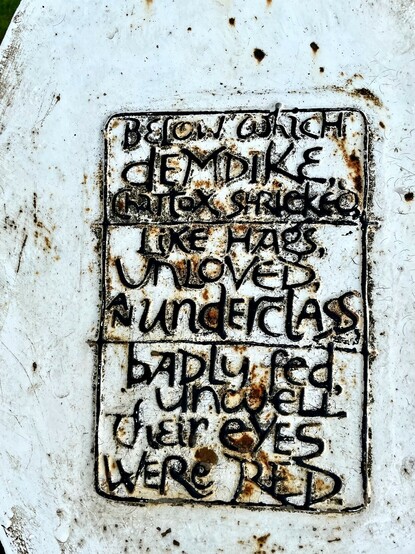 BELOW WHICH
dEMDIKE,
CHATTOX SHRIEKED,
LIKE HAGS,
UNLOVED,
AN UNDERCLASS,
bADLY fed,
unwell
Their EYES
WERE RED